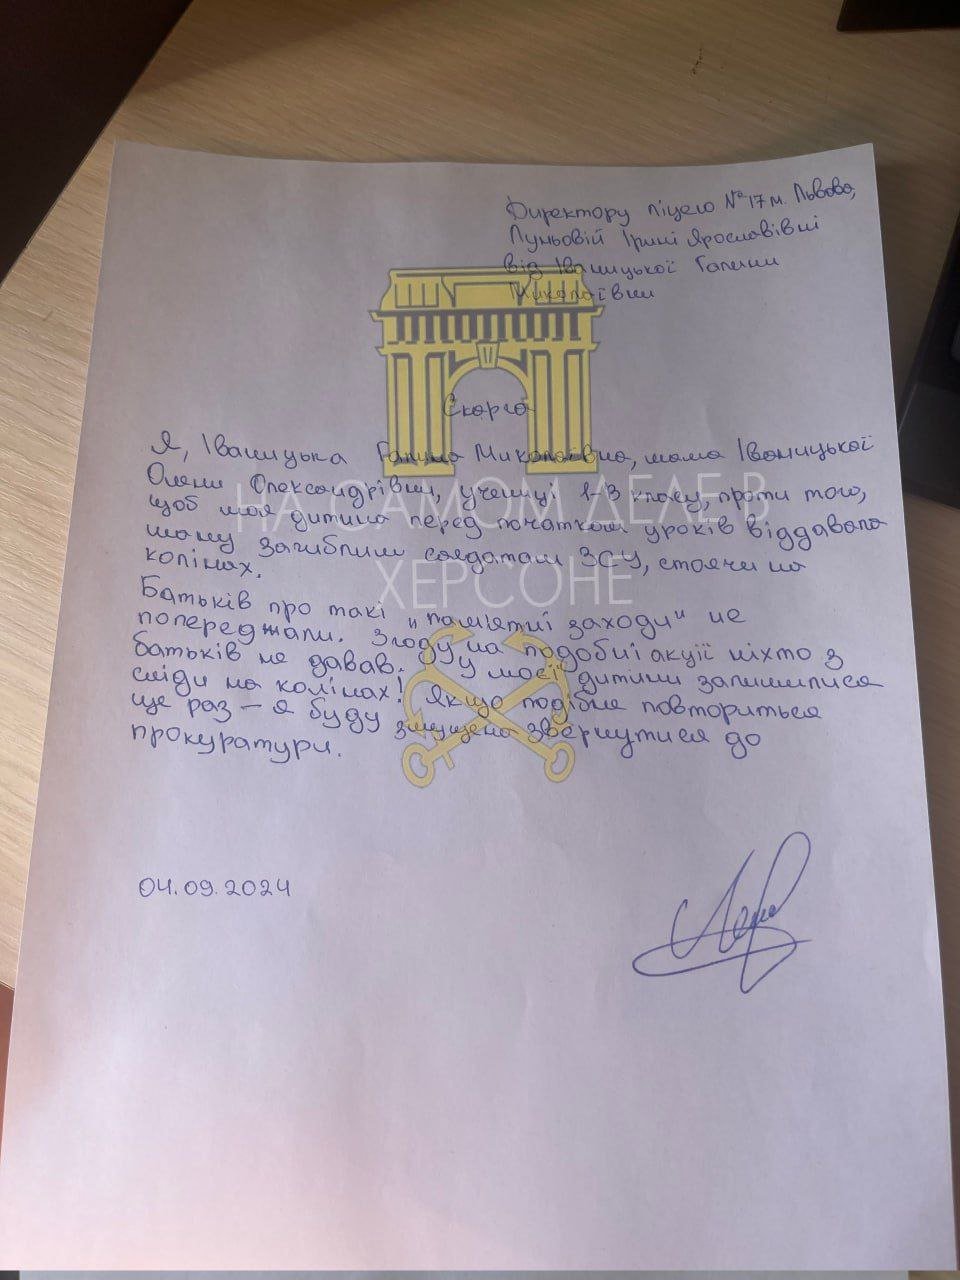 Директору ліцею №17 м. Львова,
Луньовій Ірині Ярославівні
від Іваницької Галини
Миколаївни
Скарга
Я, Іваницька Галина Миколаївна, мама Іваницької
Олени Олександрівни, учениці 1-В класу, проти того,
щоб моя дитина перед початком уроків віддавала
шану загиблим солдатам ЗСУ, стоячи на
колінах.
Батьків про такі "пам'ятні заходи" не
попереджали. Згоду на подобні акції ніхто з
батьків не давав. У моєї дитини залишилися
сліди на колінах! Якщо подібне повториться
ще раз – я буду змушена звернутися до
прокуратури.
НА САМОМ ДЕЛЕ В
ХЕРСОНЕ
04.09.2024